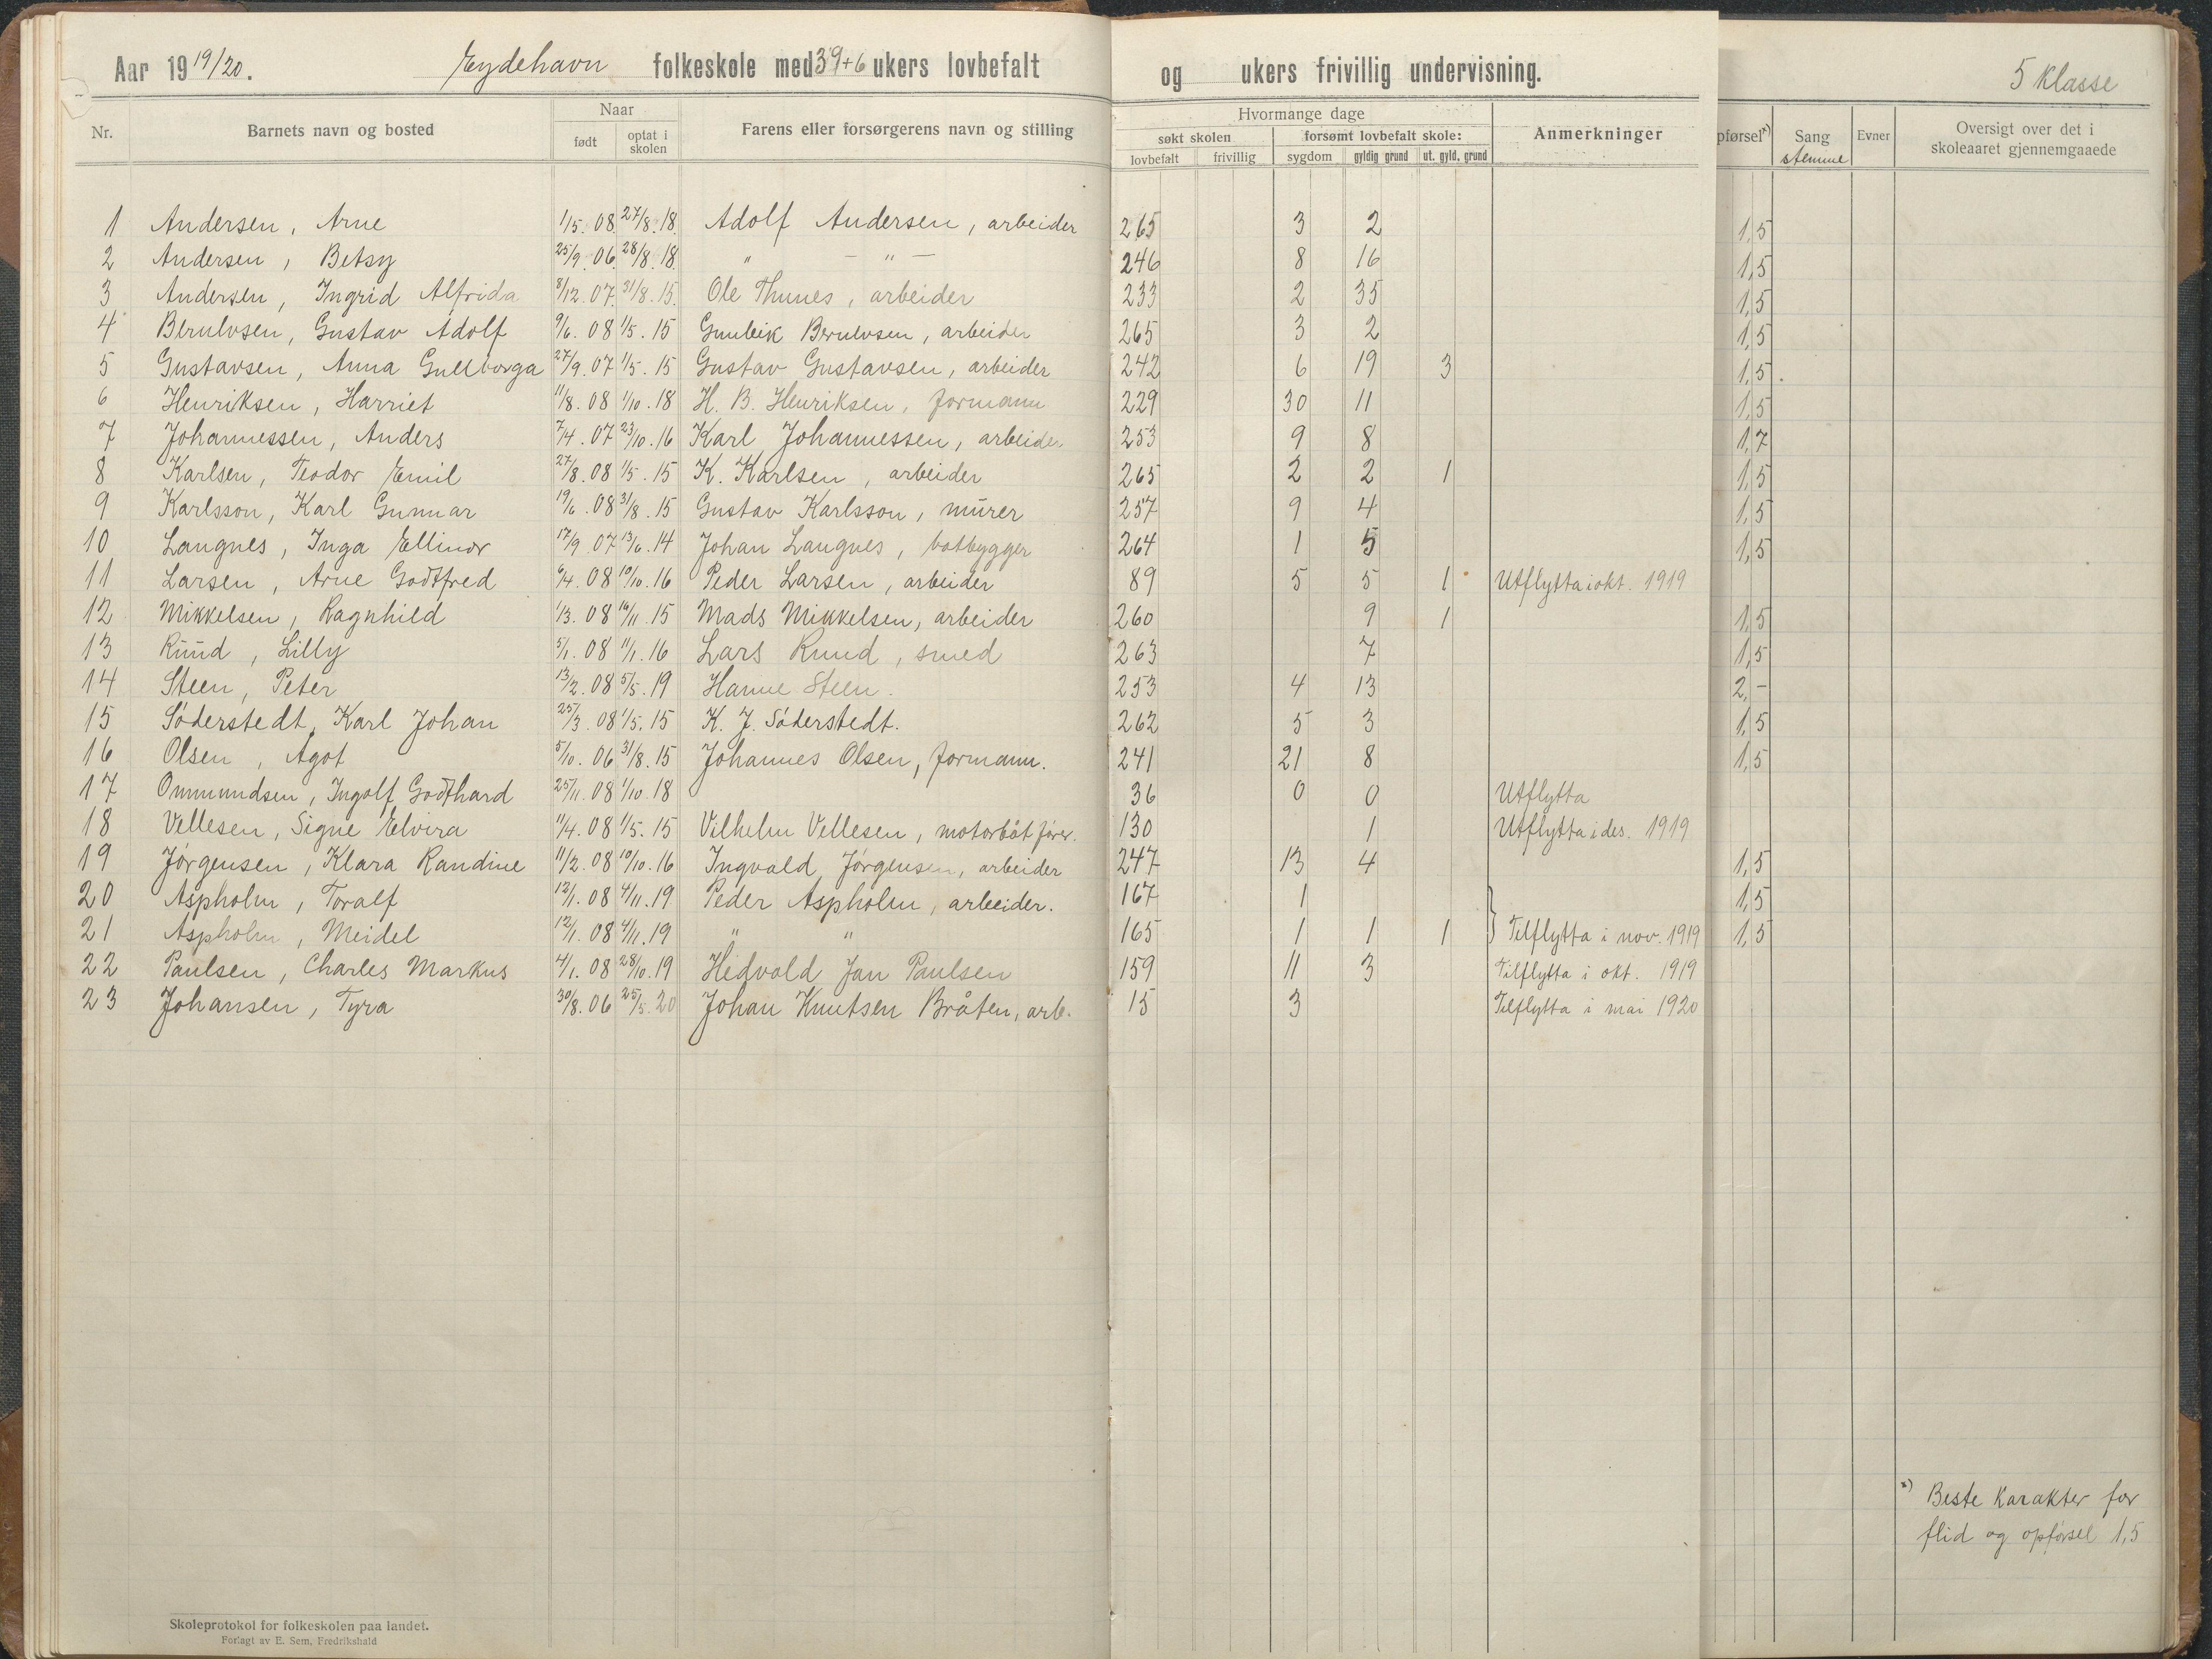 Aar 1919/20. Eydehavn folkeskole med 39+6 ukers lovbefalt og ukers frivillig undervisning. 5 klasse
Nr. Barnets navn og bosted Naar Farens eller forsørgerens navn og stilling Hvormange dage Anmerkninger pførsel x) Sang Evner Oversigt over det i
født optat i søkt skolen forsømt lovbefalt skole: stemme skoleaaret gjennemgaaede
skolen lovbefalt frivillig sygdom gyldig grund ut. gyld. grund
1 Andersen, Arne 1/5. 08 27/8. 18. Adolf Andersen, arbeider 265 3 2 1,5
2 Andersen, Betsy 25/9. 06. 28/8. 18. " — " — 246 8 16 1,5
3 Andersen, Ingrid Alfrida 8/12. 07. 31/8. 15. Ole Thunes, arbeider 233 2 35 1,5
4 Berulvsen, Gustav Adolf 9/6. 08 1/5. 15 Gunleik Berulvsen, arbeider 265 3 2 1,5
5 Gustavsen, Anna Gullborga 27/9. 07 1/5. 15 Gustav Gustavsen, arbeider 242 6 19 3 1,5
6 Henriksen, Harriet 11/8. 08 1/10. 18 H. B. Henriksen, formann 229 30 11 1,5
7 Johannessen, Anders 7/4. 07 23/10. 16 Karl Johannessen, arbeider 253 9 8 1,7
8 Karlsen, Teodor Emil 27/8. 08 1/5. 15 K. Karlsen, arbeider 265 2 2 1 1,5
9 Karlsson, Karl Gunnar 19/6. 08 31/8. 15 Gustav Karlsson, murer 257 9 4 1,5
10 Langnes, Inga Ellinor 17/9. 07 13/6. 14 Johan Langnes, botbygger 264 1 5 1,5
11 Larsen, Arne Godtfred 6/4. 08 10/10. 16 Peder Larsen, arbeider 89 5 5 1 Utflytta i okt. 1919
12 Mikkelsen, Ragnhild 1/3. 08 16/11. 15 Mads Mikkelsen, arbeider 260 9 1 1,5
13 Ruud, Lilly 5/1. 08 11/1. 16 Lars Ruud, smed 263 7 1,5
14 Steen, Peter 13/2. 08 5/5. 19 Hanne Steen. 253 4 13 2,-
15 Söderstedt, Karl Johan 25/3. 08 1/5. 15 K. J. Söderstedt. 262 5 3 1,5
16 Olsen, Agot 5/10. 06 31/8. 15 Johannes Olsen, formann. 241 21 8 1,5
17 Ommundsen, Ingolf Godthard 25/11. 08 1/10. 18 36 0 0 Utflytta
18 Vellesen, Signe Elvira 11/4. 08 1/5. 15 Vilhelm Vellesen, motorbåtfører. 130 1 Utflytta i des. 1919
19 Jørgensen, Klara Randine 11/2. 08 10/10. 16 Ingvald Jørgensen, arbeider 247 13 4 1,5
20 Aspholm, Toralf 12/1. 08 4/11. 19 Peder Aspholm, arbeider. 167 1 1,5
21 Aspholm, Meidel 12/1. 08 4/11. 19 " " 165 1 1 1 } Tilflytta i nov. 1919 1,5
22 Paulsen, Charles Markus 4/1. 08 28/10. 19 Hidvald Jan Paulsen 159 11 3 Tilflytta i okt. 1919
23 Johansen, Tyra 30/8. 06 25/5. 20 Johan Knutsen Bråten, arb. 15 3 Tilflytta i mai 1920
x) Beste karakter for
flid og opførsel 1,5
Skoleprotokol for folkeskolen paa landet.
Forlagt av E. Sem, Fredrikshald